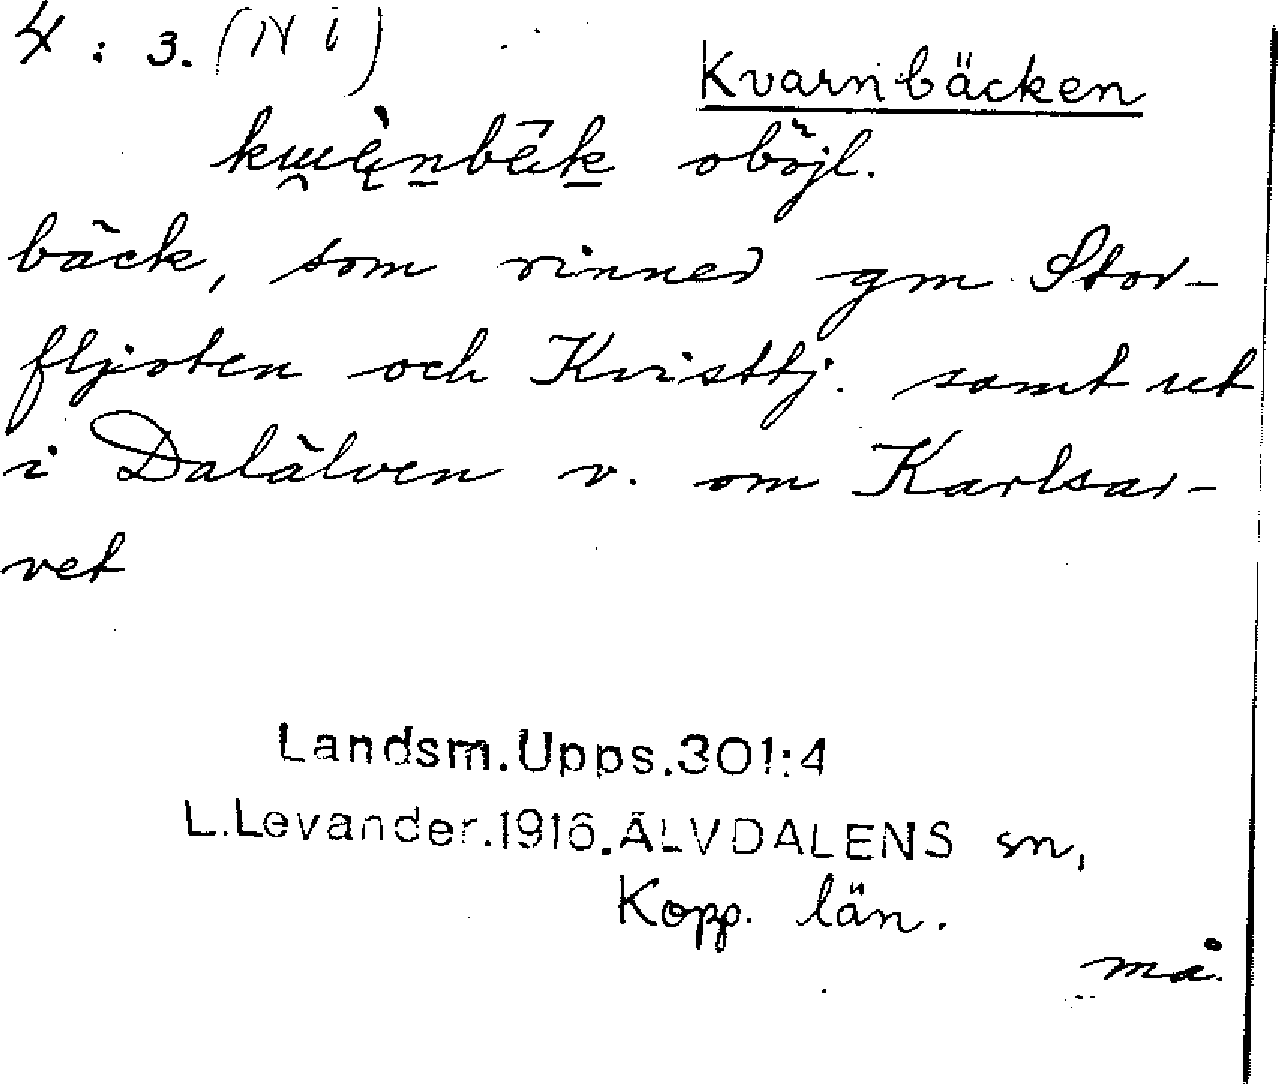 4:3. (N i)
Kvarnbäcken
kwänbäk oböjl.
bäck, som rinner gm Stor-
fljoten och Kvisttj. samt ut
i Dalälven v. om Karlsar-
vet
Landsm.Upps.301:4
L.Levander.1916.ÄLVDALENS sn,
Kopp. län.
må.